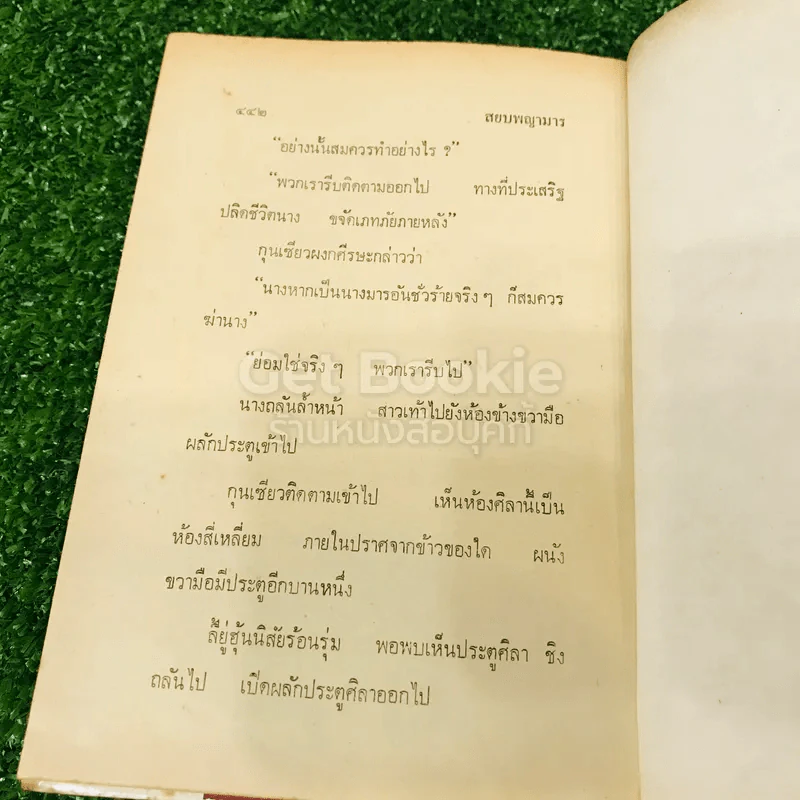 ๔๔๒ สยบพญามาร
“อย่างนั้นสมควรทำอย่างไร ?”
“พวกเรารีบติดตามออกไป ทางที่ประเสริฐ
ปลิดชีวิตนาง ขจัดเภทภัยภายหลัง”
กุนเซียวผงกศีรษะกล่าวว่า
“นางหากเป็นนางมารอันชั่วร้ายจริง ๆ ก็สมควร
ฆ่านาง”
“ย่อมใช่จริง ๆ พวกเรารีบไป”
Get Bookie
นางถลันล้ำหน้า สาวเท้าไปยังห้องข้างขวามือ
ร้านหนังสือบุคกี้
ผลักประตูเข้าไป
กุนเซียวติดตามเข้าไป เห็นห้องศิลานี้เป็น
ห้องสี่เหลี่ยม ภายในปราศจากข้าวของใด ผนัง
ขวามือมีประตูอีกบานหนึ่ง
ลี้ยู่ฮุ้นนิสัยร้อนรุ่ม พอพบเห็นประตูศิลา ชิง
ถลันไป เปิดผลักประตูศิลาออกไป